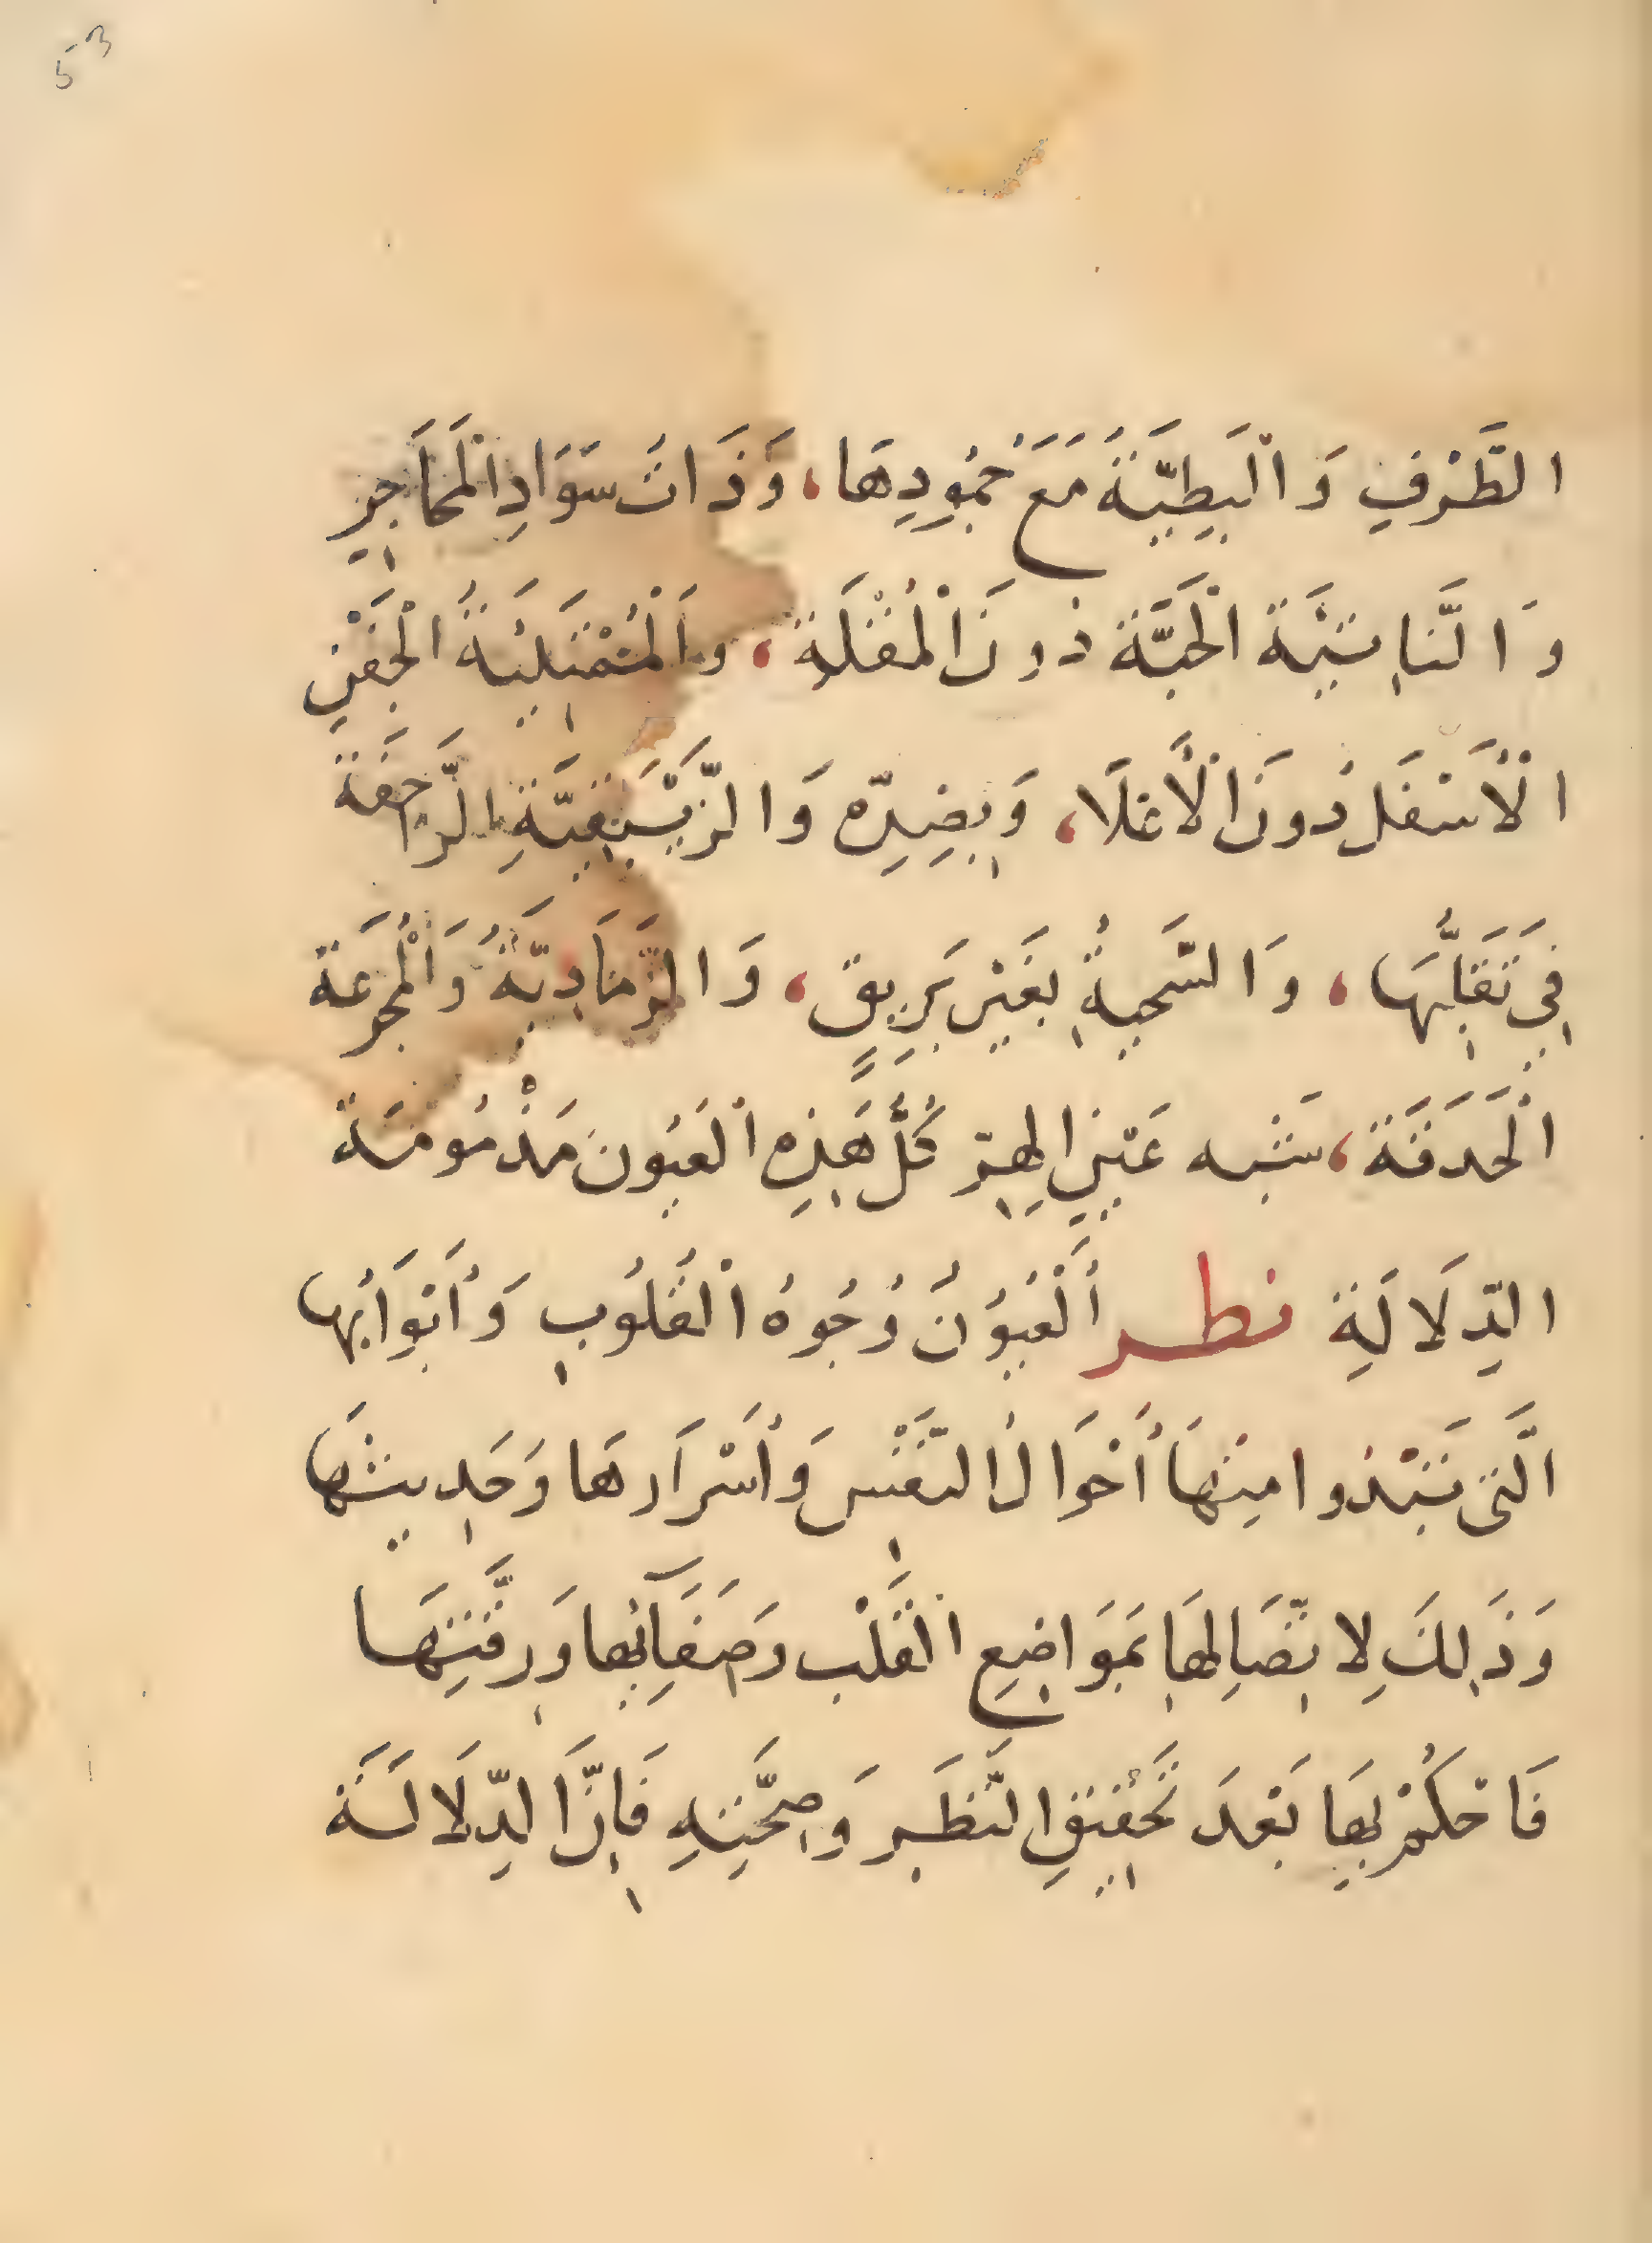 53
الطَّرْفِ وَالْبَطِيَّةُ مَعَ خُمُودِهَا، وَذَاتُ سَوَادِ الْمَحَاجِرِ
وَالنَّاتِيَّةَ الْحَبَّة دُونَ الْمُقْلَة، وَالْمُمْتَلِئَةُ الْجَفْنِ
الْأَسْفَل دُونَ الْأَعْلَا، وَبِضِدِّهِ وَالزَّيْبَقِيَّةِ الرَّاجِفَة
فِي تَقَلُّبِهَا، وَالسَّمْجِيةُ بِغَيْرِ بَرِيقٍ، وَالرَّمَادِيَّةُ وَالْمُجَرَّعَة
الْحَدَقَة، شبه عَيْنِ الهِرِّ كُلُّ هَذِهِ الْعُيُونَ مَذْمُومَة
الدِّلَالَةِ نظر أَلْعُيُونَ وُجُوهُ الْقُلُوبِ وَأَبْوَابُهَا
الَّتِى تَبْدُوا مِنْهَا أَحْوَالُ النَّفْسِ وَأَسْرَارهَا وَحَدِيثهَا
وَذَلِكَ لِاتِّصَالِهَا بِمَوَاضِعِ الْقَلْبِ وَصَفَآئِهَا وَرِقَّتِهَا
فَاحْكُمْ بِهَا بَعْدَ تَحْقِيقِ النَّظَرِ وَصِحَّتِهِ فَإِنَّ الدِّلَالَة